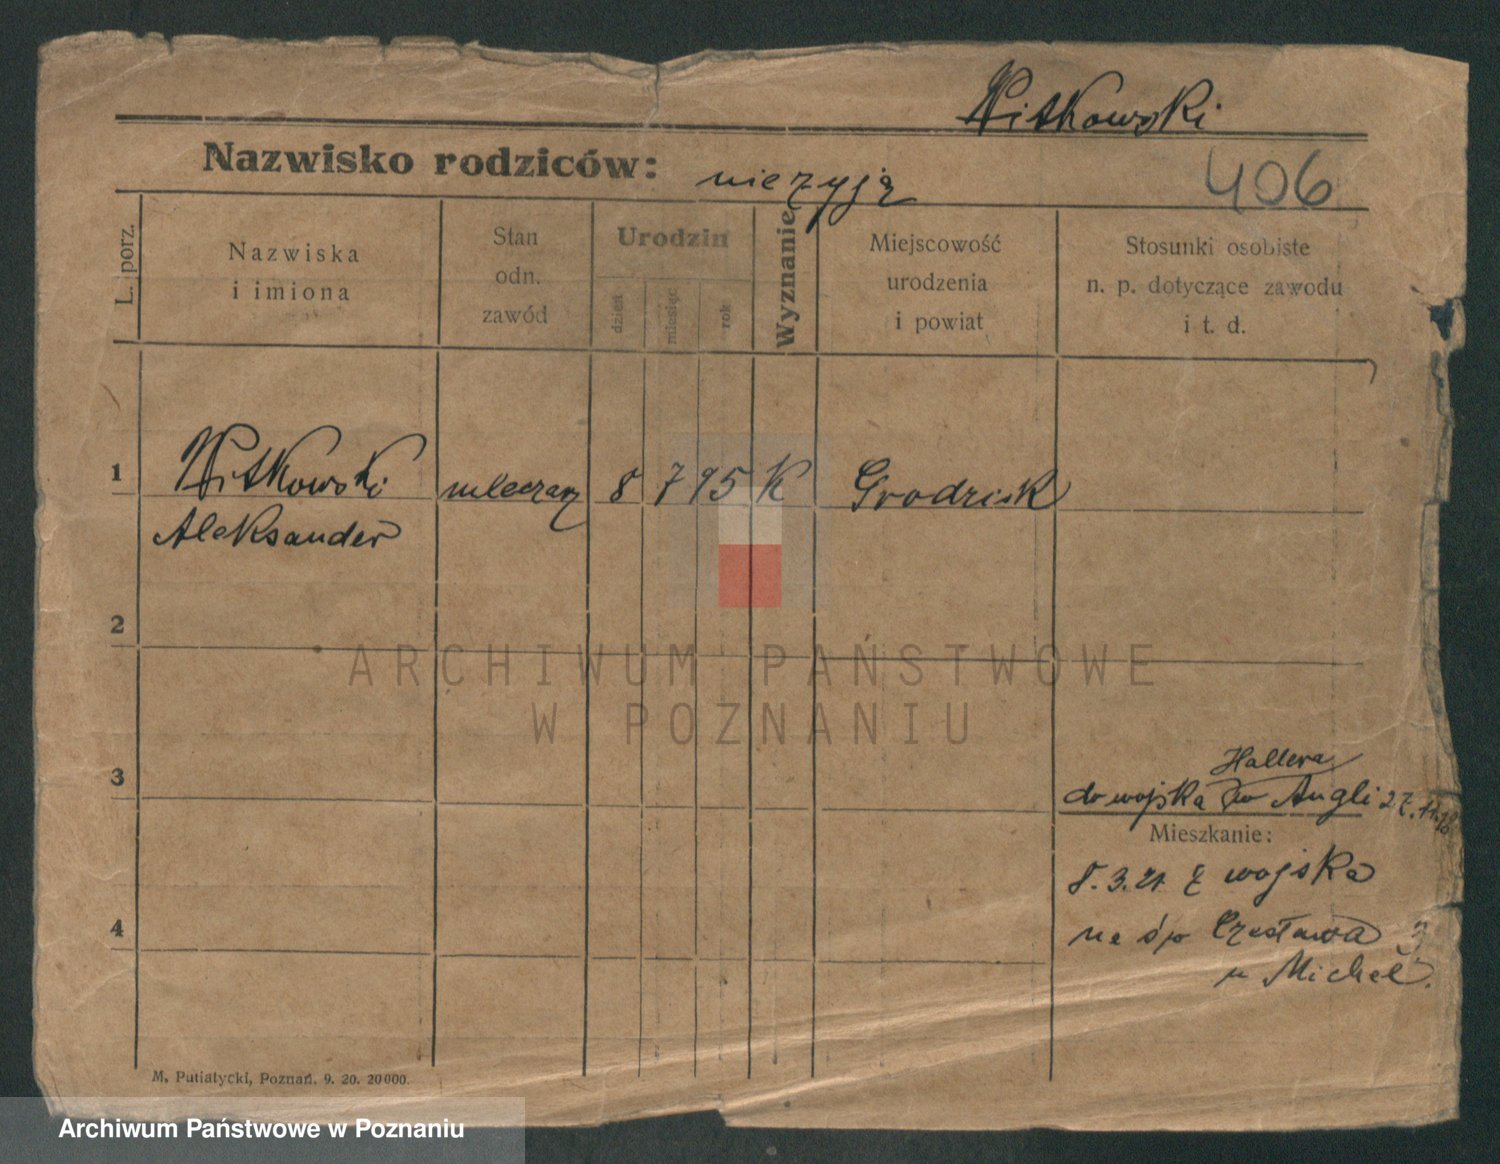 Witkowski
Nazwisko rodziców: nie żyją
406
L. porz.
Nazwiska
i imiona
Stan
odn.
zawód
Urodzin
dzień
miesiąc
rok
Wyznanie
Miejscowość
urodzenia
i powiat
Stosunki osobiste
n. p. dotyczące zawodu
i t. d.
1 Witkowski mleczarz 8 7 95 K Grodzisk
Aleksander
2
3
4
Hallera
do wojska w Angli 27.11.18
Mieszkanie:
8.3.21 z wojska
na śp Czesława 3
u Michel.
M. Putiatycki, Poznań. 9. 20. 20000.
ARCHIWUM PAŃSTWOWE
W POZNANIU
Archiwum Państwowe w Poznaniu